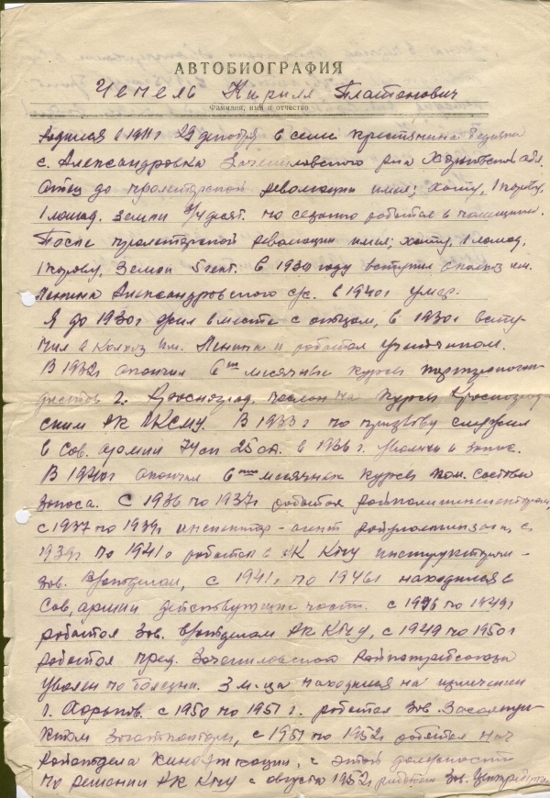 АВТОБИОГРАФИЯ
Чепель Кирилл Платонович
Фамилия, имя и отчество
Родился в 1911г 29 декабря в семье крестьянина бедняка
с. Александровка Зачепиловского р-на Харьковской обл.
Отец до пролетарской революции имел: хату, 1 корову,
1 лошад. земли 3/4 десят. по работал в помещика.
После пролетарской революции имел: хату, 1 лошад,
1 корову, Земли 5 гект. в 1930 году вступил в колхоз им.
Ленина Александровского с/с. в 1940г умер.
Я до 1930г жил вместе с отцом, в 1930г всту-
пил в колхоз им. Ленина и работал
В 1932г окончил 6ти месячные курсы
г. Красноград, послан на курсы Красноград
ским РК ЛКСМУ. В 1933г по призыву служил
в Сов. армии 74 сп 25 сд. в 1936г уволили в запас.
В 1940г окончил 6ти месячные курсы пол. состава
запаса. С 1936 по 1937г работал
с 1937 по 1939г инспектор-агент с
1939г по 1941г работал в РК КПУ инструктором-
зав. с 1941г по 1946г находился в
Сов. армии действующие части. с 1946 по 1949г
работал зав. РК КПУ, с 1949 по 1950г
работал пред. Зачепиловского Райпотребсоюза
уволен по болезни. 3 м-ца находился на излечении
г. Харьков. с 1950 по 1951г. работал зав.
с 1951 по 1952г работал нач
Райотдела кинофикации, с этой должности
по решению РК КПУ с августа 1952г работаю зав.